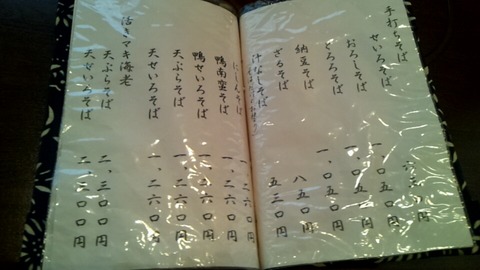 手打ちそば
せいろそば 円
おろしそば 一、〇五〇円
とろろそば 一、〇五〇円
納豆そば 一、〇五〇円
ざるそば 八五〇円
汁なしそば 五三〇円
にしんそば 一、二六〇円
鴨南蛮そば 一、二六〇円
鴨せいろそば 一、二六〇円
天ぷらそば 一、二六〇円
天せいろそば 一、二六〇円
活きマキ海老
天ぷらそば 二、三〇〇円
天せいろそば 二、三〇〇円